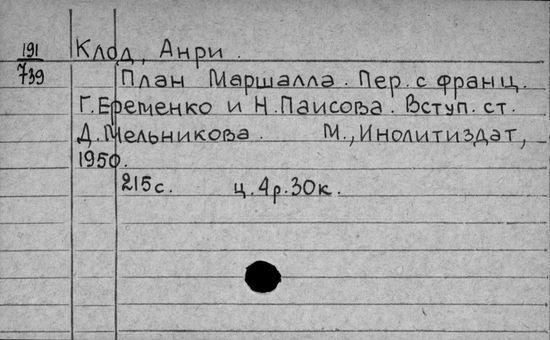 191 Клод, Анри.
739 План Маршалла. Пер. с франц.
Г. Еременко и Н. Паисова. Вступ. ст.
Д. Мельникова. М., Инолитиздат,
1950.
215с. ц. 4р. 30к.